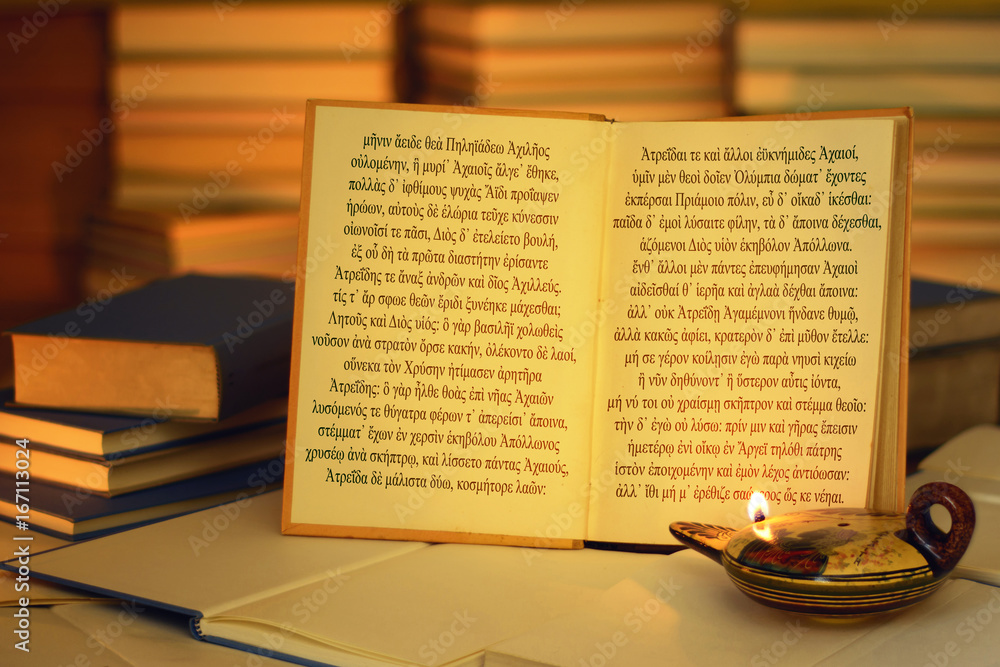 μῆνιν ἄειδε θεὰ Πηληϊάδεω Ἀχιλῆος
οὐλομένην, ἣ μυρί᾽ Ἀχαιοῖς ἄλγε᾽ ἔθηκε,
πολλὰς δ᾽ ἰφθίμους ψυχὰς Ἄϊδι προΐαψεν
ἡρώων, αὐτοὺς δὲ ἑλώρια τεῦχε κύνεσσιν
οἰωνοῖσί τε πᾶσι, Διὸς δ᾽ ἐτελείετο βουλή,
ἐξ οὗ δὴ τὰ πρῶτα διαστήτην ἐρίσαντε
Ἀτρεΐδης τε ἄναξ ἀνδρῶν καὶ δῖος Ἀχιλλεύς.
τίς τ᾽ ἄρ σφωε θεῶν ἔριδι ξυνέηκε μάχεσθαι;
Λητοῦς καὶ Διὸς υἱός: ὃ γὰρ βασιλῆϊ χολωθεὶς
νοῦσον ἀνὰ στρατὸν ὄρσε κακήν, ὀλέκοντο δὲ λαοί,
οὕνεκα τὸν Χρύσην ἠτίμασεν ἀρητῆρα
Ἀτρεΐδης: ὃ γὰρ ἦλθε θοὰς ἐπὶ νῆας Ἀχαιῶν
λυσόμενός τε θύγατρα φέρων τ᾽ ἀπερείσι᾽ ἄποινα,
στέμματ᾽ ἔχων ἐν χερσὶν ἑκηβόλου Ἀπόλλωνος
χρυσέῳ ἀνὰ σκήπτρῳ, καὶ λίσσετο πάντας Ἀχαιούς,
Ἀτρεΐδα δὲ μάλιστα δύω, κοσμήτορε λαῶν:
Ἀτρεΐδαι τε καὶ ἄλλοι ἐϋκνήμιδες Ἀχαιοί,
ὑμῖν μὲν θεοὶ δοῖεν Ὀλύμπια δώματ᾽ ἔχοντες
ἐκπέρσαι Πριάμοιο πόλιν, εὖ δ᾽ οἴκαδ᾽ ἱκέσθαι:
παῖδα δ᾽ ἐμοὶ λύσαιτε φίλην, τὰ δ᾽ ἄποινα δέχεσθαι,
ἁζόμενοι Διὸς υἱὸν ἑκηβόλον Ἀπόλλωνα.
ἔνθ᾽ ἄλλοι μὲν πάντες ἐπευφήμησαν Ἀχαιοὶ
αἰδεῖσθαί θ᾽ ἱερῆα καὶ ἀγλαὰ δέχθαι ἄποινα:
ἀλλ᾽ οὐκ Ἀτρεΐδῃ Ἀγαμέμνονι ἥνδανε θυμῷ,
ἀλλὰ κακῶς ἀφίει, κρατερὸν δ᾽ ἐπὶ μῦθον ἔτελλε:
μή σε γέρον κοίλῃσιν ἐγὼ παρὰ νηυσὶ κιχείω
ἢ νῦν δηθύνοντ᾽ ἢ ὕστερον αὖτις ἰόντα,
μή νύ τοι οὐ χραίσμῃ σκῆπτρον καὶ στέμμα θεοῖο:
τὴν δ᾽ ἐγὼ οὐ λύσω: πρίν μιν καὶ γῆρας ἔπεισιν
ἡμετέρῳ ἐνὶ οἴκῳ ἐν Ἄργεϊ τηλόθι πάτρης
ἱστὸν ἐποιχομένην καὶ ἐμὸν λέχος ἀντιόωσαν:
ἀλλ᾽ ἴθι μή μ᾽ ἐρέθιζε σαώτερος ὥς κε νέηαι.
Adobe Stock | #167113024